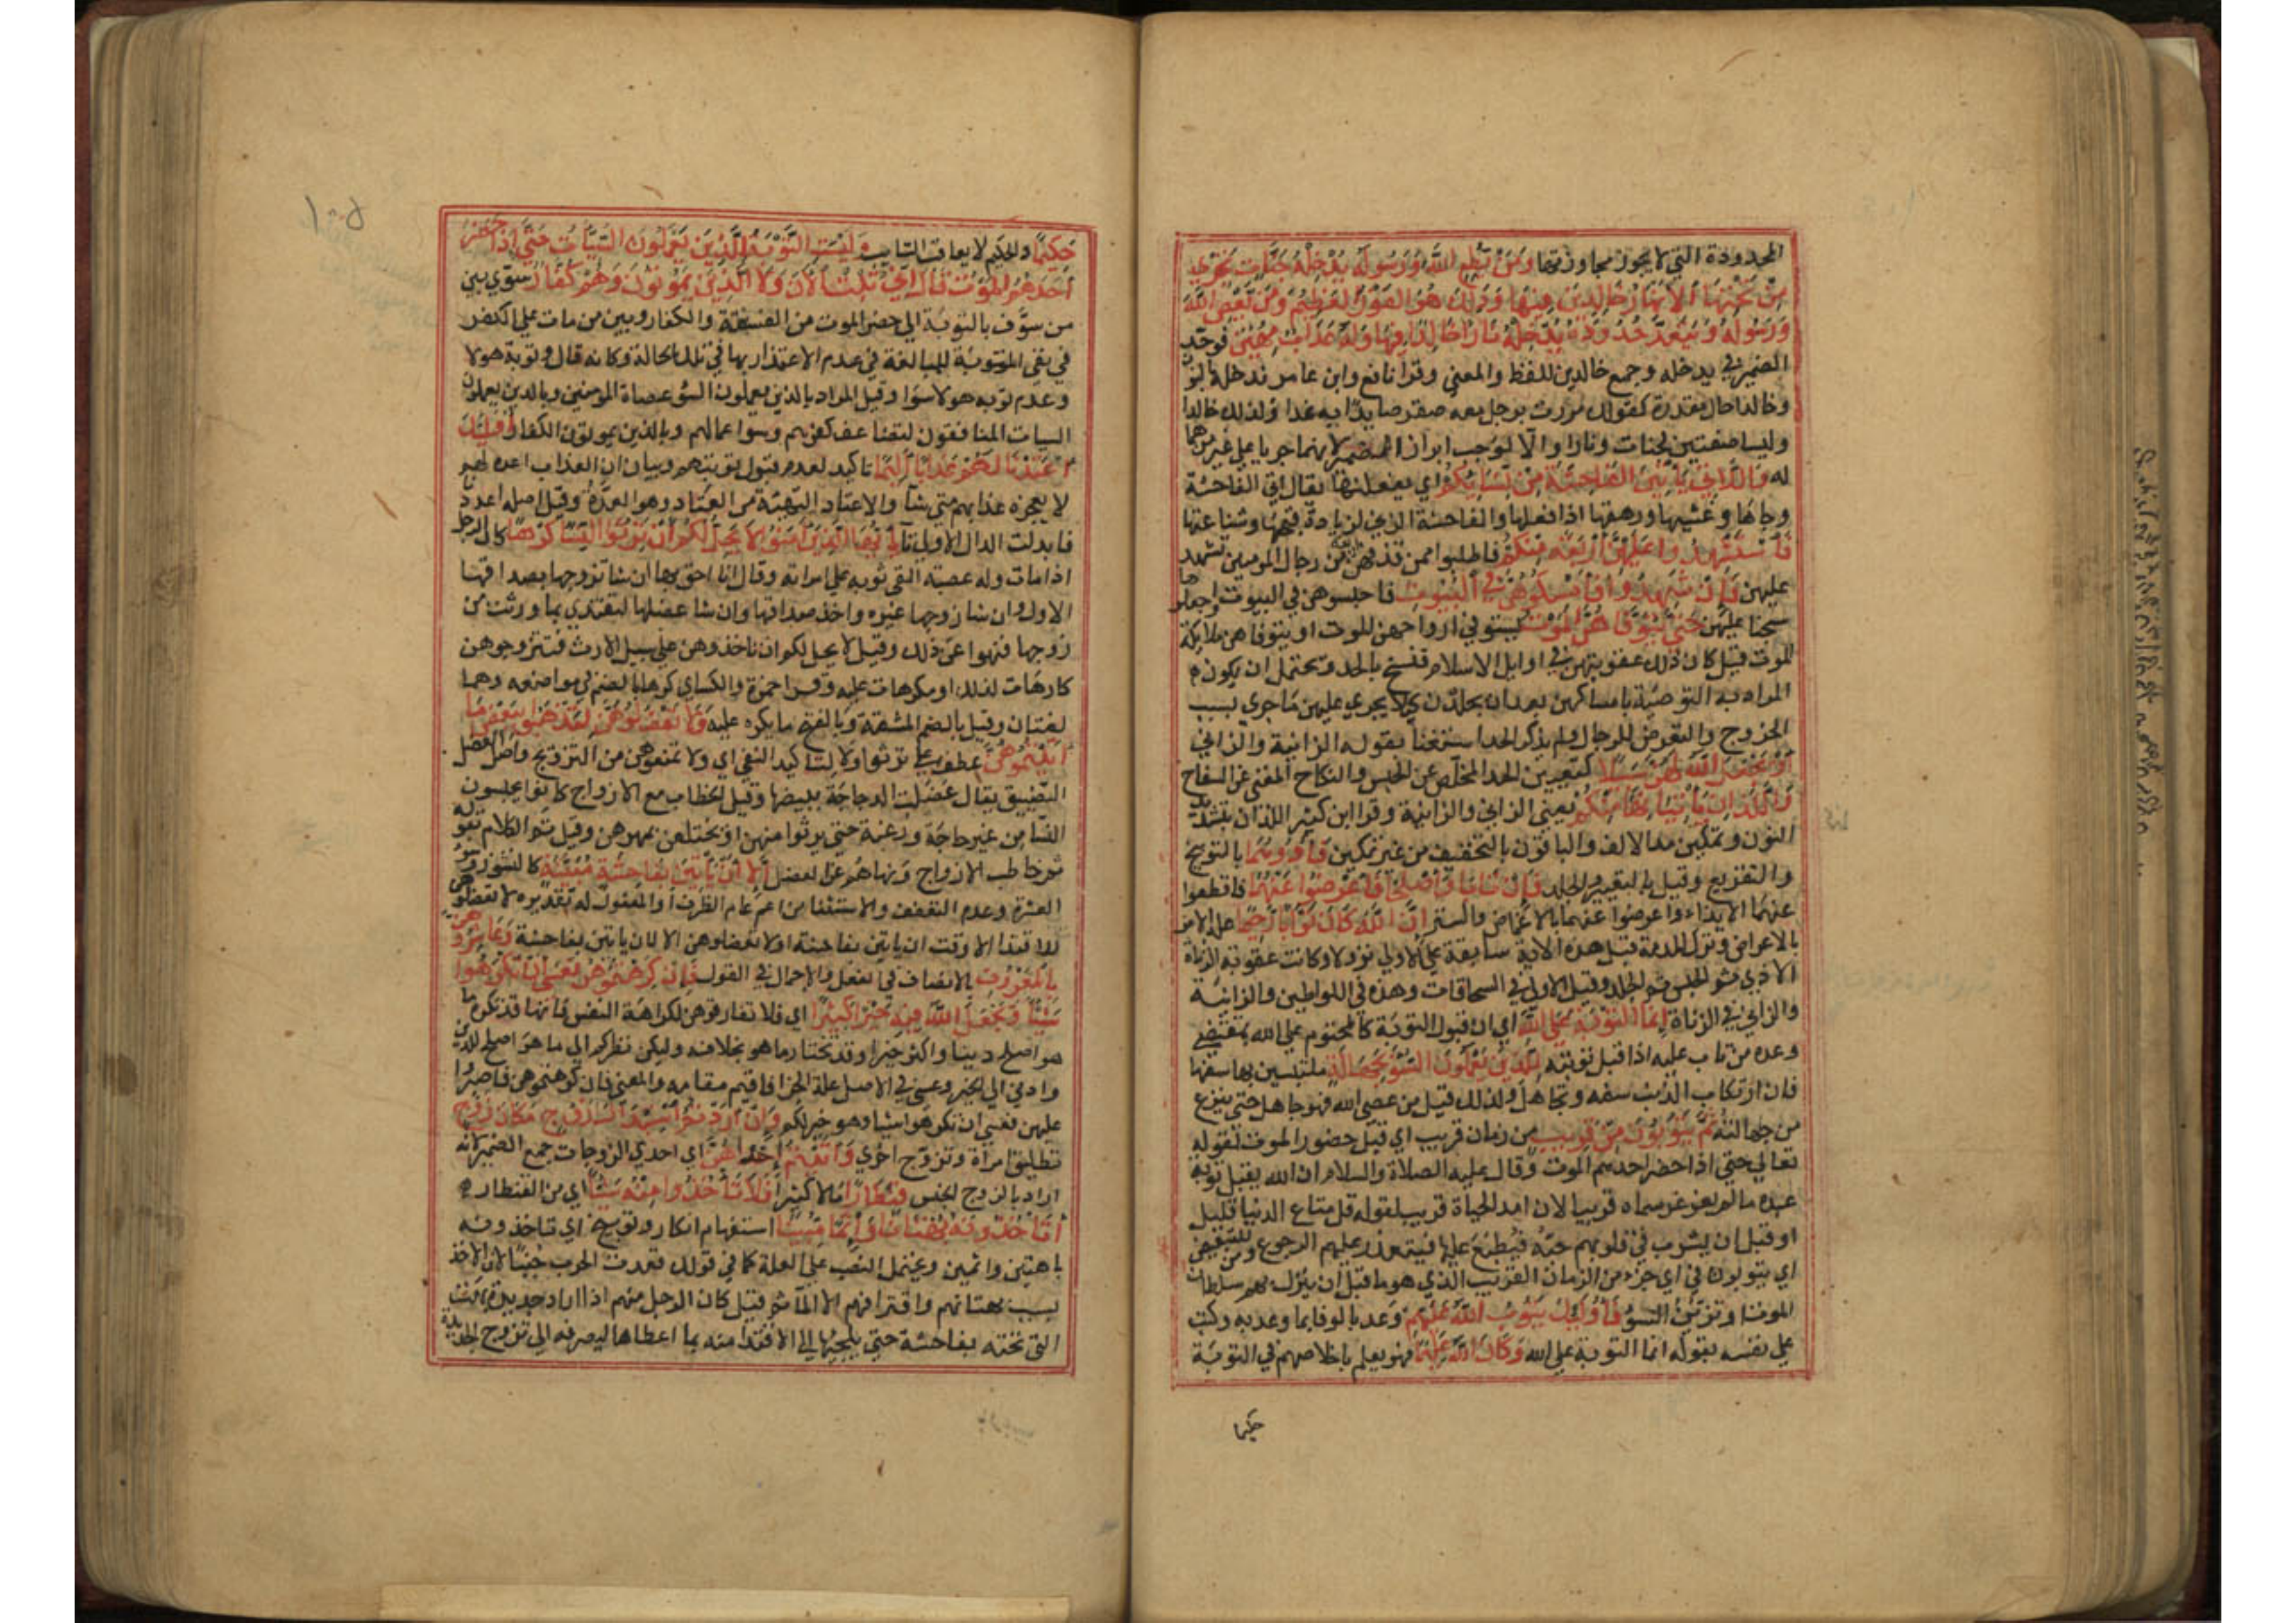 المحدودة التي لا يجوز مجاوزتها ومن يطع الله ورسوله يدخله جنات تجري
من تحتها الانهار خالدين فيها وذلك هو الفوز العظيم ومن يعص الله
ورسوله ويتعد حدوده يدخله نارا خالدا فيها وله عذاب مهين فوحد
الضمير في يدخله وجمع خالدين للفظ والمعنى وقرا نافع وابن عامر ندخله بالنون
وخالدا حال مقدرة كقولك مررت برجل معه صقر صايدا به غدا وكذلك خالدا
وليسا صفتين لجنات ونارا والا لوجب ابراز الضمير لانهما جريا على غير من هما
له واللاتي ياتين الفاحشة من نسايكم اي يفعلنها يقال اتى الفاحشة
وجاها وغشيها ورهقها اذا فعلها والفاحشة الزنى لزيادة قبحها وشناعتها
فاستشهدوا عليهن اربعة منكم فاطلبوا ممن قذفهن من رجال المومنين تشهد
عليهن فان شهدوا فامسكوهن في البيوت فاحبسوهن في البيوت واجعلوها
سجنا عليهن حتى يتوفاهن الموت يستوفي ارواحهن الموت او يتوفاهن ملايكة
الموت قيل كان ذلك عقوبتهن في اوايل الاسلام فنسخ بالحد ويحتمل ان يكون
المراد به التوصية بامساكهن بعد ان يجلدن كيلا يجري عليهن ما جرى بسبب
الخروج والتعرض للرجال ولم يذكر الحد استغنا بقوله الزانية والزاني
او يجعل الله لهن سبيلا كتعيين الحد المخلص عن الحبس والنكاح المغني عن السفاح
واللذان ياتيانها منكم يعني الزاني والزانية وقرا ابن كثير اللذان بتشديد
النون وتمكين مد الالف والباقون بالتخفيف من غير تمكين فاذوهما بالتوبيخ
والتقريع وقيل بالتعيير والجلد فان تابا واصلحا فاعرضوا عنهما فاقطعوا
عنهما الايذاء واعرضوا عنهما بالاغماض والستر ان الله كان توابا رحيما علة الامر
بالاعراض وترك المذمة قيل هذه الاية سابقة على الاولى نزولا وكانت عقوبة الزناة
الاذى ثم الحبس ثم الجلد وقيل الاولى في السحاقات وهذه في اللواطين والزانية
والزاني في الزناة انما التوبة على الله اي ان قبول التوبة كالمحتوم على الله بمقتضى
وعده من تاب عليه اذا قبل توبته للذين يعملون السوء بجهالة ملتبسين بها سفها
فان ارتكاب الذنب سفه وتجاهل ولذلك قيل من عصى الله فهو جاهل حتى ينزع
من جهالته ثم يتوبون من قريب من زمان قريب اي قبل حضور الموت لقوله
تعالى حتى اذا حضر احدهم الموت وقال عليه الصلاة والسلام ان الله يقبل توبة
عبده ما لم يغرغر سماه قريبا لان امد الحياة قريب لقوله قل متاع الدنيا قليل
او قبل ان يشرب في قلوبهم حبه فيطبع عليها فيتعذر عليهم الرجوع ومن للتبعيض
اي يتوبون في اي جزء من الزمان القريب الذي هو ما قبل ان ينزل بهم سلطان
الموت او تزيين السوء فاوليك يتوب الله عليهم وعد بالوفا بما وعد به وكتب
على نفسه بقوله انما التوبة على الله وكان الله عليما فهو يعلم باخلاصهم في التوبة
حكيما
١٠٥
حكيما والحكيم لا يعاقب التايب وليست التوبة للذين يعملون السيات حتى اذا حضر
احدهم الموت قال اني تبت الان ولا الذين يموتون وهم كفار سوى بين
من سوف بالتوبة الى حضر الموت من الفسقة والكفار وبين من مات على الكفر
في نفي التوبة للمبالغة في عدم الاعتداد بها في تلك الحالة وكانه قال وتوبة هولا
وعدم توبة هولا سوا وقيل المراد بالذين يعملون السوء عصاة المومنين وبالذين يعملون
السيات المنافقون لتضاعف كفرهم وسوا عمالهم وبالذين يموتون الكفار اوليك
اعتدنا لهم عذابا اليما تاكيد لعدم قبول توبتهم وبيان ان العذاب اعده لهم
لا يعجزه عذابهم متى شا والاعتاد التهيئة من العتاد وهو العدة وقيل اصله اعددنا
فابدلت الدال الاولى تا يا ايها الذين امنوا لا يحل لكم ان ترثوا النسا كرها كان الرجل
اذا مات وله عصبة القى ثوبه على امراته وقال انا احق بها ان شا تزوجها بصداقها
الاول وان شا زوجها غيره واخذ صداقها وان شا عضلها لتفتدي بما ورثت من
زوجها فنهوا عن ذلك وقيل لا يحل لكم ان تاخذوهن على سبيل الارث فتتزوجوهن
كارهات لذلك او مكرهات عليه وقرا حمزة والكساي كرها بالضم في مواضعه وهما
لغتان وقيل بالضم المشقة وبالفتح ما يكره عليه ولا تعضلوهن لتذهبوا ببعض ما
اتيتموهن عطف على ترثوا ولا لتاكيد النفي اي ولا تمنعوهن من التزويج واصل العضل
التضييق يقال عضلت الدجاجة ببيضها وقيل الخطاب مع الازواج كانوا يحبسون
النسا من غير حاجة ورغبة حتى يرثوا منهن او يختلعن بمهورهن وقيل تم الكلام بقوله
ثم خاطب الازواج ونهاهم عن العضل الا ان ياتين بفاحشة مبينة كالنشوز وسوء
العشرة وعدم التعفف والاستثنا من اعم عام الظرف او المفعول له تقديره لا تعضلوهن
للافتدا الا وقت ان ياتين بفاحشة او لا تعضلوهن الا لان ياتين بفاحشة وعاشروهن
بالمعروف بالانصاف في الفعل والاجمال في القول فان كرهتموهن فعسى ان تكرهوا
شيئا ويجعل الله فيه خيرا كثيرا اي فلا تفارقوهن لكراهة النفس فانها قد تكره ما
هو اصلح دينا واكثر خيرا وقد تحب ما هو بخلافه وليكن نظركم الى ما هو اصلح للدين
وادنى الى الخير وعسى في الاصل علة الجزا فاقيم مقامه والمعنى فان كرهتموهن فاصبروا
عليهن فعسى ان تكرهوا شيا وهو خير لكم وان اردتم استبدال زوج مكان زوج
تطليق امراة وتزوج اخرى واتيتم احداهن اي احدى الزوجات جمع الضمير لانه
اراد بالزوج الجنس قنطارا مالا كثيرا فلا تاخذوا منه شيئا اي من القنطار
اتاخذونه بهتانا واثما مبينا استفهام انكار وتوبيخ اي تاخذونه
باهتين واثمين ويحتمل النصب على العلة كما في قولك قعدت الحرب جبنا لان الاخذ
بسبب بهتانهم واقترافهم الماثم قيل كان الرجل منهم اذا اراد جديدة بهت
التي تحته بفاحشة حتى يلجئها الى الافتدا منه بما اعطاها ليصرفه الى تزوج الجديدة